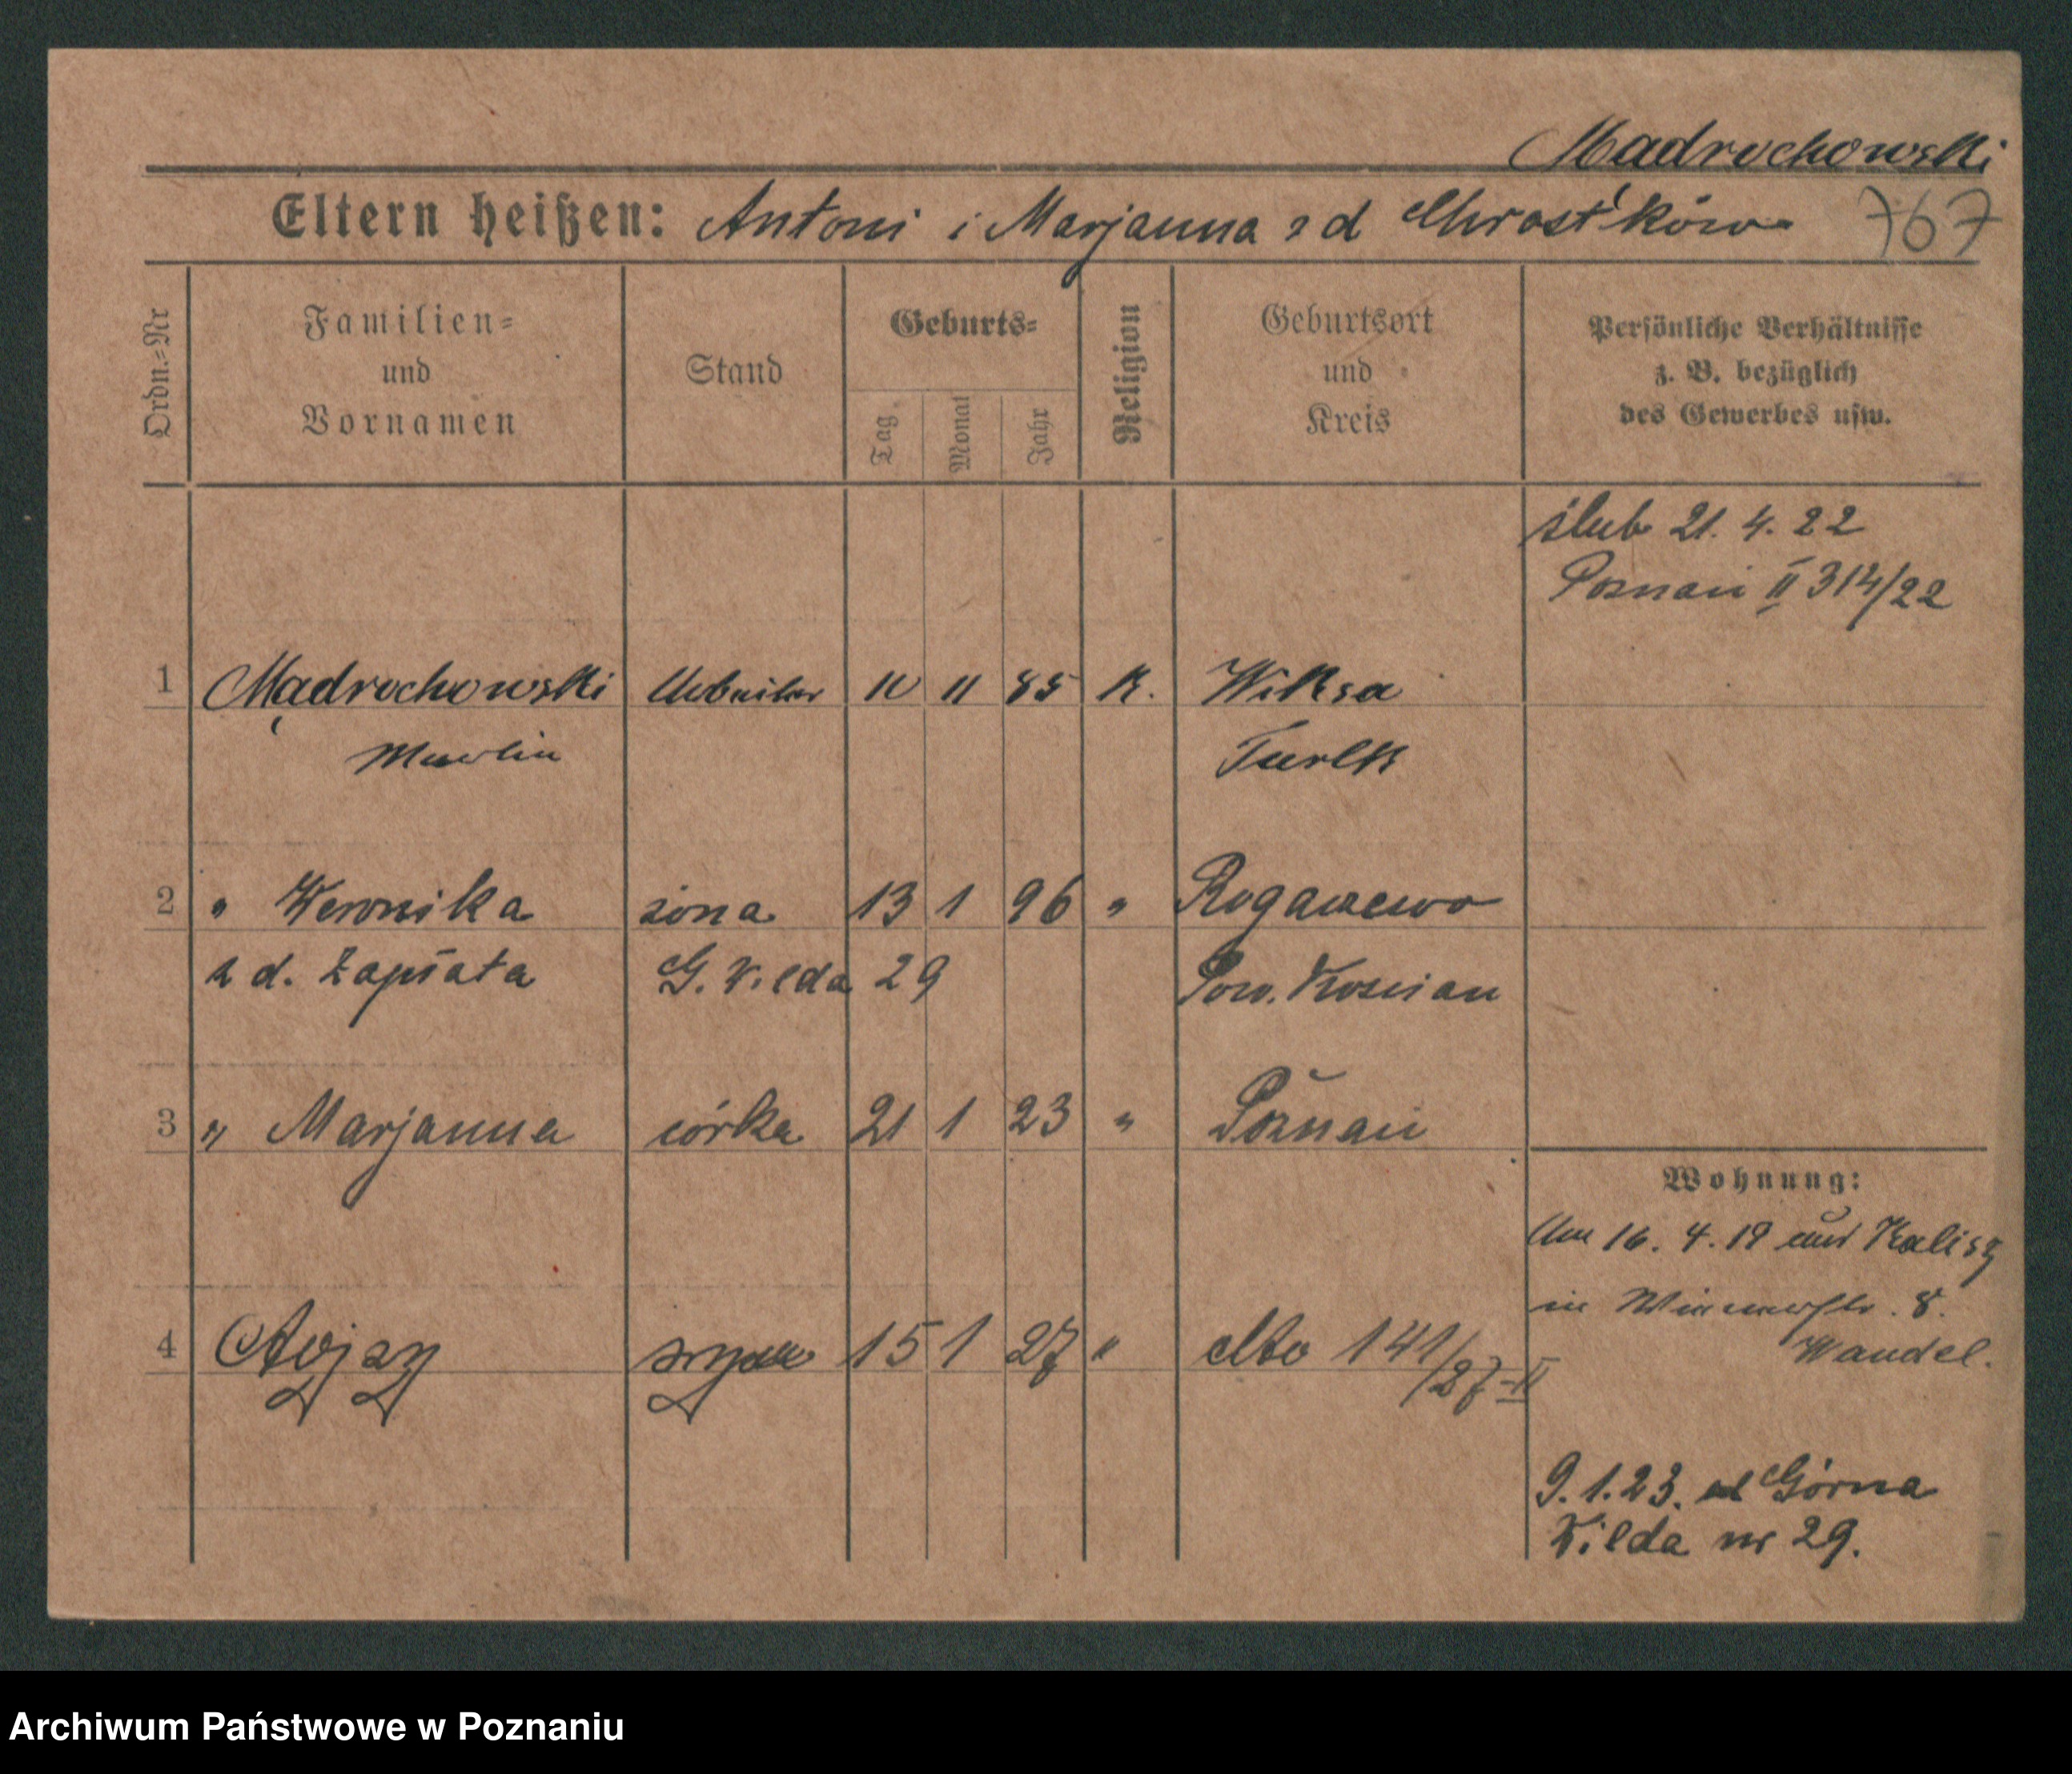 Madrochowski
Eltern heißen: Antoni i Marjanna z d Chrostków 767
Ordn.=Nr
Familien=
und
Vornamen
Stand
Geburts=
Tag
Monat
Jahr
Religion
Geburtsort
und
Kreis
Persönliche Verhältnisse
z. B. bezüglich
des Gewerbes usw.
ślub 21. 4. 22
Poznań II 314/22
1 Mądrochowski Arbeiter 10 11 85 K. Wiksa
Turek
2 " Weronika żona 13 1 96 " Rogaszewo
z d. Zapłata G. Wilda 29 Pow. Kościan
3 " Marjanna córka 21 1 23 " Poznań
Wohnung:
Am 16. 4. 19 aus Kalisz
in 8.
Wandel.
4 15 1 27 " dto 141/27-II
9.1.23. Górna
Wilda nr 29.
Archiwum Państwowe w Poznaniu